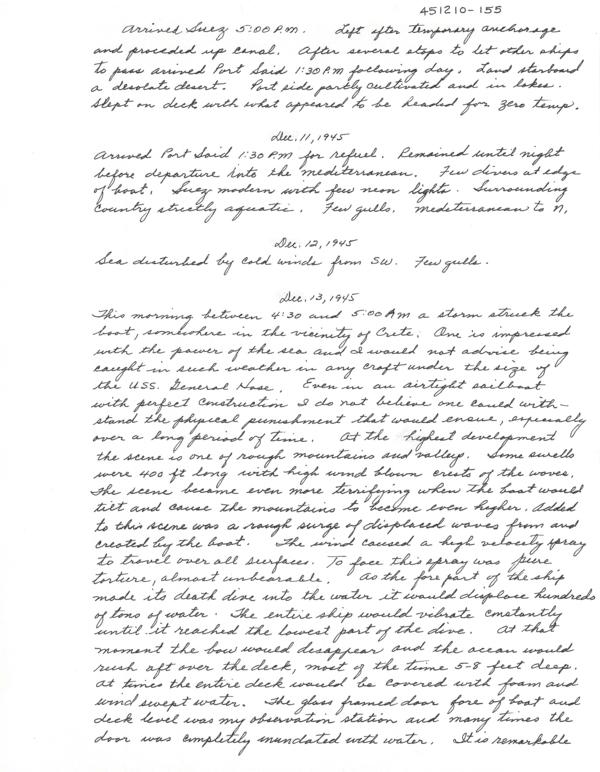 451210-155
Arrived Suez 5:00 P.M. Left after temporary anchorage
and proceded up canal. After several stops to let other ships
to pass arrived Port Said 1:30 P.M following day. Land starboard
a desolate desert. Port side partly cultivated and in lakes.
Slept on deck with what appeared to be headed for zero temp.
Dec. 11, 1945
Arrived Port Said 1:30 P.M for refuel. Remained until night
before departure into the mediterranean. Few divers at edge
of boat. Suez modern with few neon lights. Surrounding
country strictly aquatic. Few gulls. mediterranean to N.
Dec. 12, 1945
Sea disturbed by cold winds from SW. Few gulls.
Dec. 13, 1945
This morning between 4:30 and 5:00 AM a storm struck the
boat, somewhere in the vicinity of Crete. One is impressed
with the power of the sea and I would not advise being
caught in such weather in any craft under the size of
the U.S.S. General Hase. Even in an airtight sailboat
with perfect construction I do not believe one could with-
stand the physical punishment that would ensue, especially
over a long period of time. At the highest development
the scene is one of rough mountains and valleys. Some swells
were 400 ft long with high wind blown crests of the waves.
The scene became even more terrifying when the boat would
tilt and cause the mountains to become even higher. Added
to this scene was a rough surge of displaced waves from and
created by the boat. The wind caused a high velocity spray
to travel over all surfaces. To face this spray was pure
torture, almost unbearable. As the fore part of the ship
made its death dive into the water it would displace hundreds
of tons of water. The entire ship would vibrate constantly
until it reached the lowest part of the dive. At that
moment the bow would disappear and the ocean would
rush aft over the deck, most of the time 5-8 feet deep.
At times the entire deck would be covered with foam and
wind swept water. The glass framed door fore of boat and
deck level was my observation station and many times the
door was completely inundated with water. It is remarkable